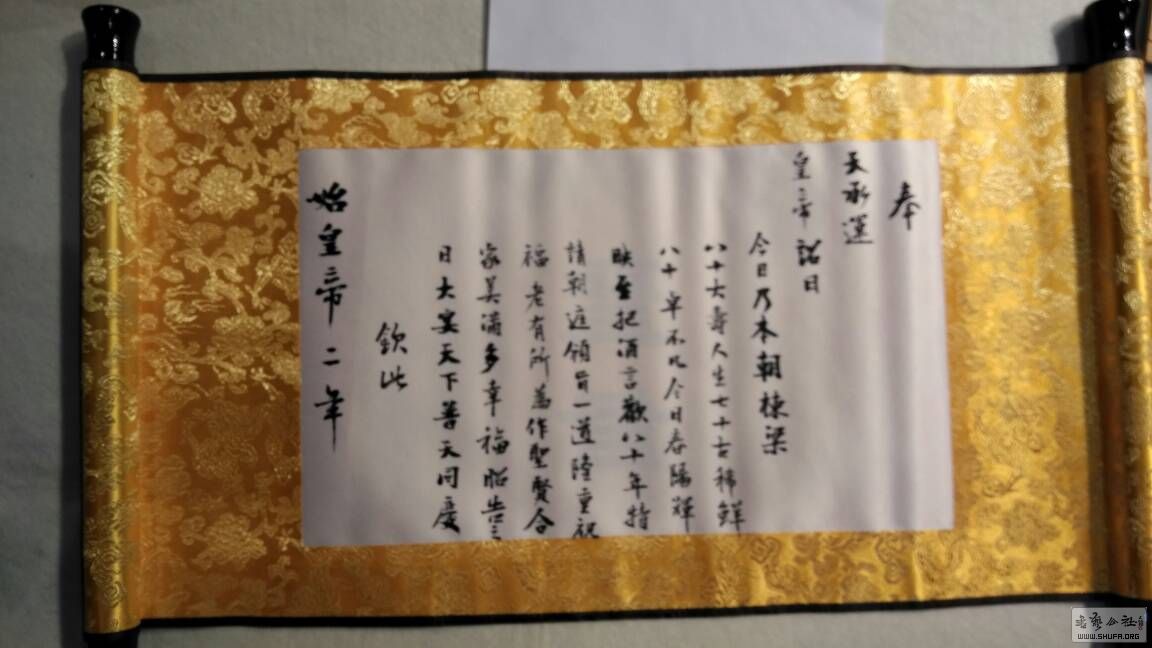 奉
天承運
皇帝詔曰
今日乃本朝棟梁
八十大壽人生七十古稀鮮
八十卓不凡今日春陽輝
映皇把酒言歡八十年特
請朝廷領旨一道隆重祝
福老有所為作聖賢合
家美滿多幸福昭告三
日大宴天下普天同慶
欽此
始皇帝二年
書藝公社
WWW.SHUFA.ORG